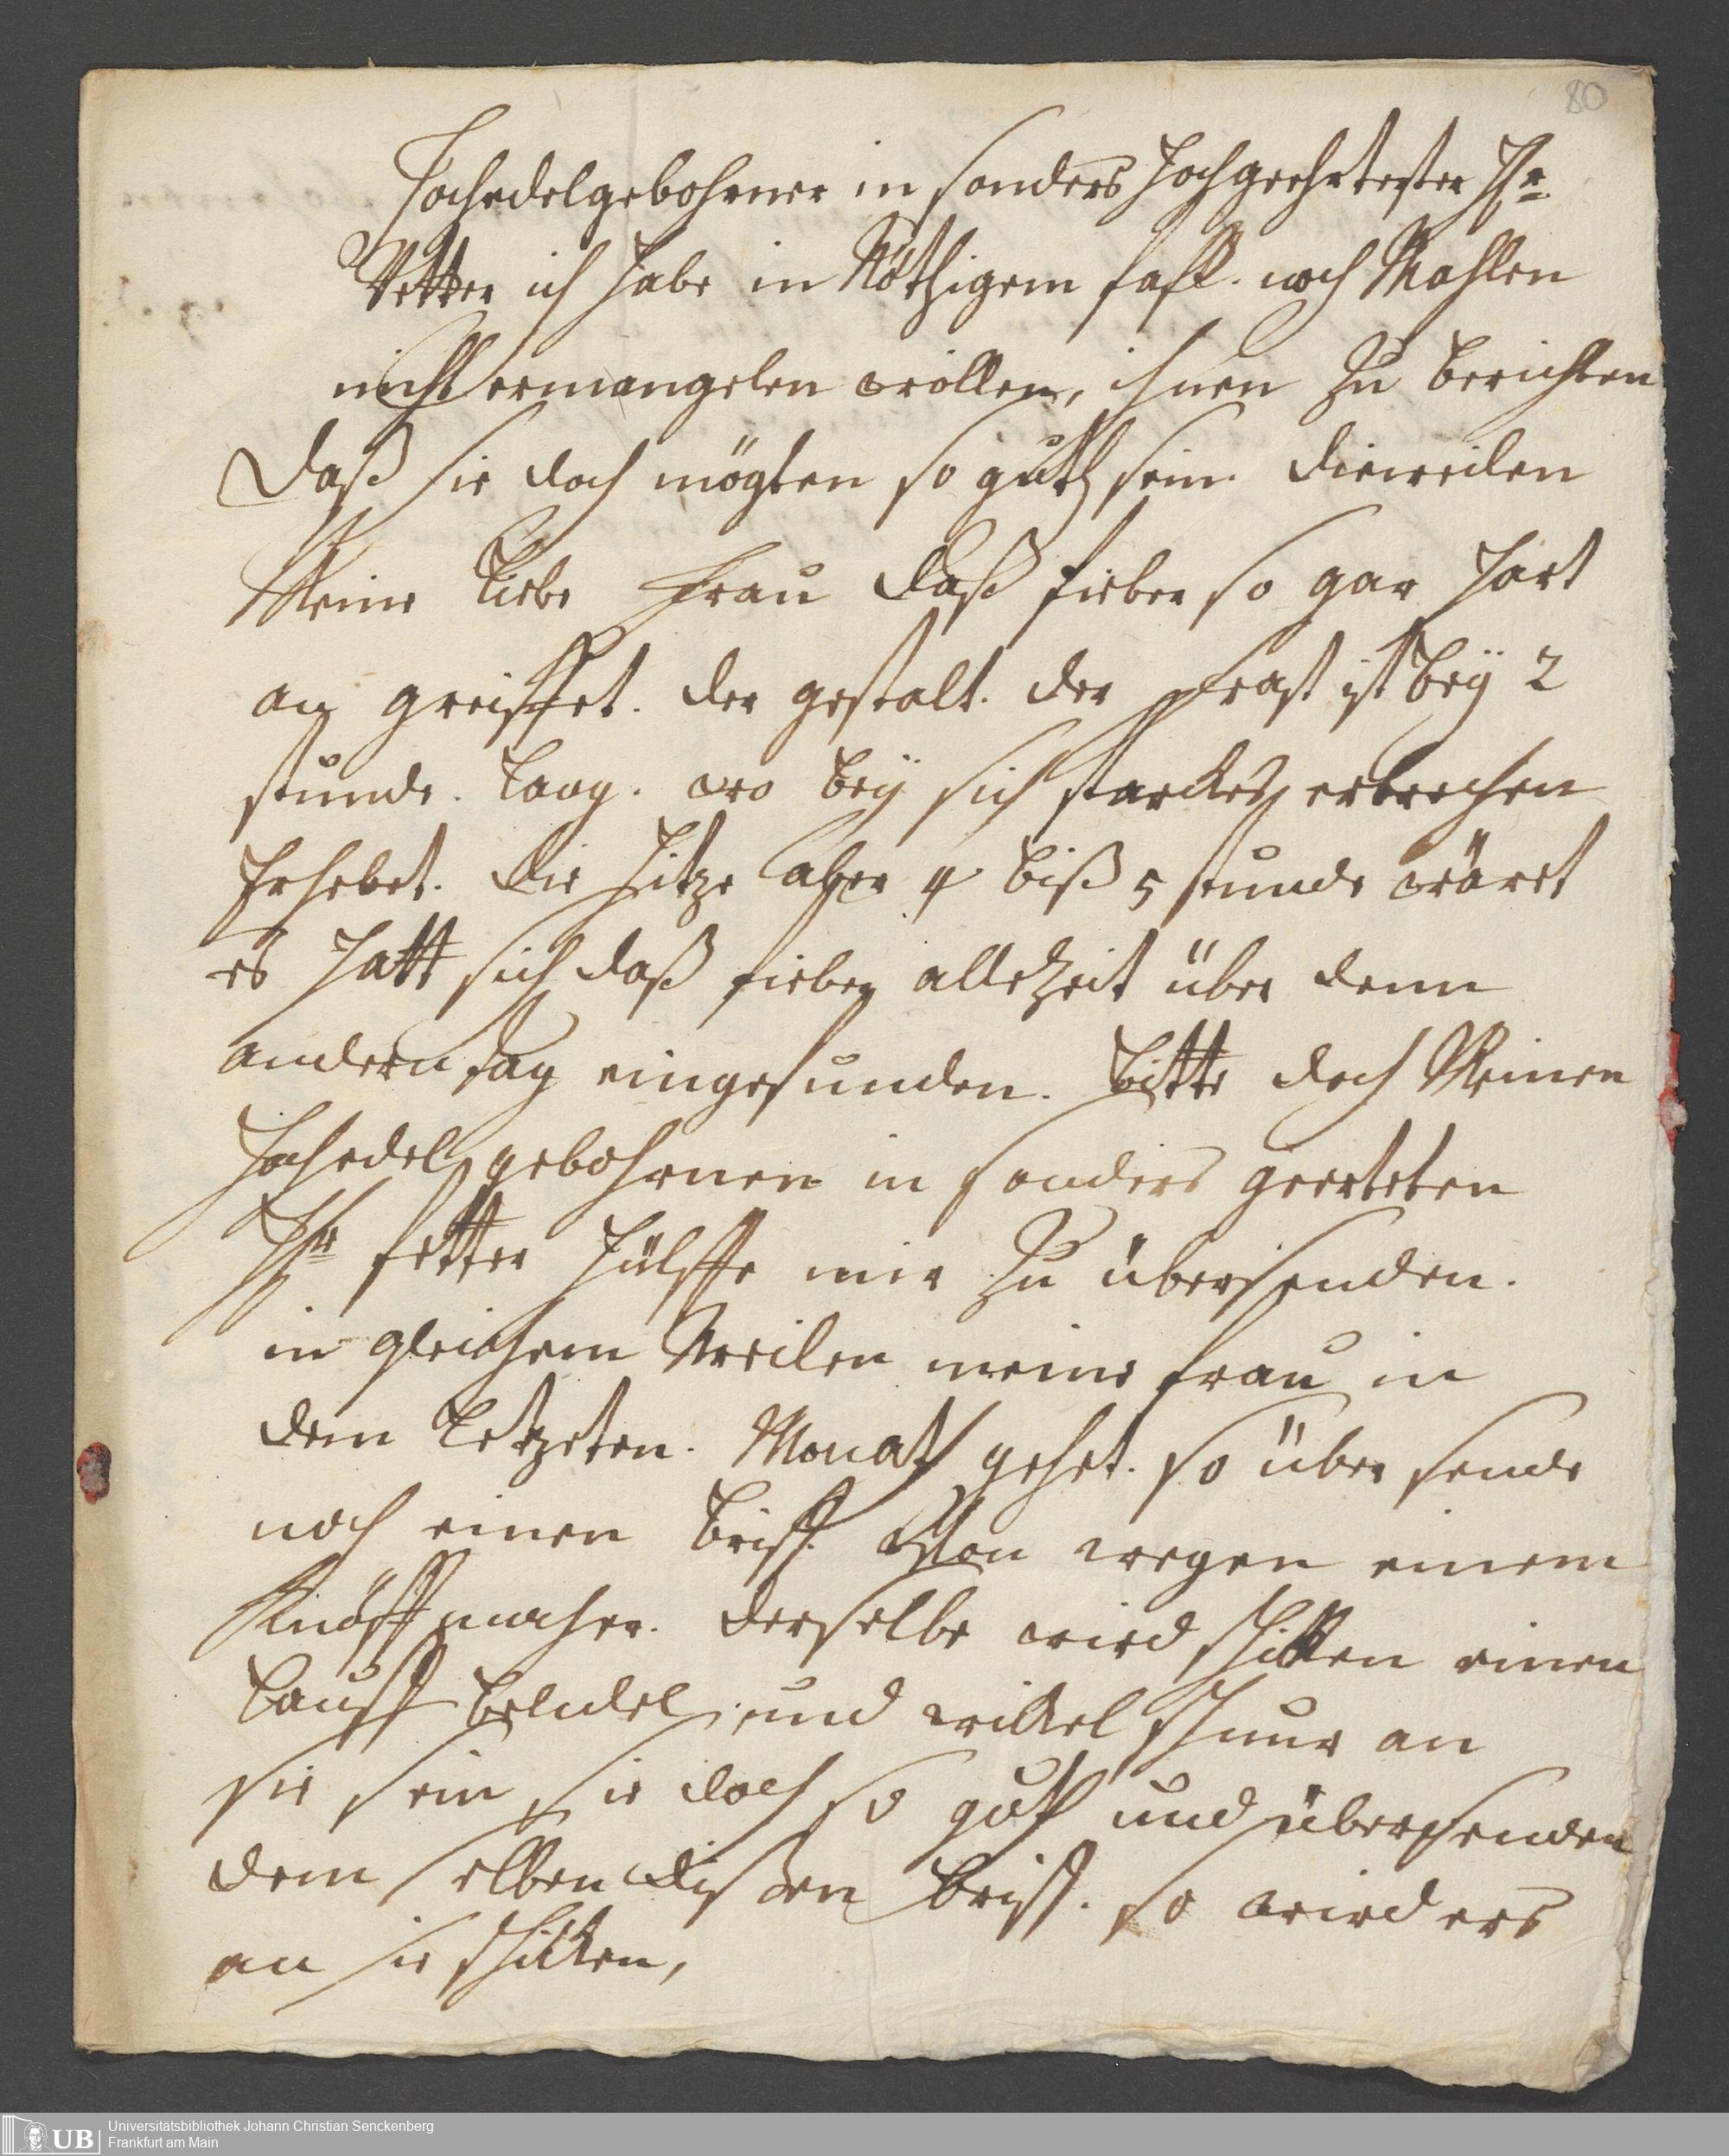 80
Hochedelgebohrner in sonders Hochgeehrtester Hr
Vetter ich habe in Nöthigem fall. noch Mahlen
nicht ermangelen wollen, ihnen zu berichten
Daß sie doch mögten so guth sein dieweilen
Meine liebe Frau daß fieber so gar hart
an greiffet. der gestalt. der Frast ist bey 2
stunde. lang. wo bey sich starckes erbrechen
Erhebet. die Hitze aber 4 biß 5 stunde wäret
es hatt sich daß fieber allezeit über denn
andern tag eingefunden. Bitte doch Meinen
Hochedelgebohrnen in sonders geerteten
Hr fetter Hülffe mir zu übersenden.
in gleichem Weilen meine frau in
dem letzeten. Monath gehet. so über sende
noch einen briff. Von wegen einem
Knöffmacher. derselbe wird schikken einen
tauff bendel und wikkel schnur an
sie sein sie doch so guth und übersenden
dem selben dissen briff. so wird ers
an sie schikken,
UB
Universitätsbibliothek Johann Christian Senckenberg
Frankfurt am Main